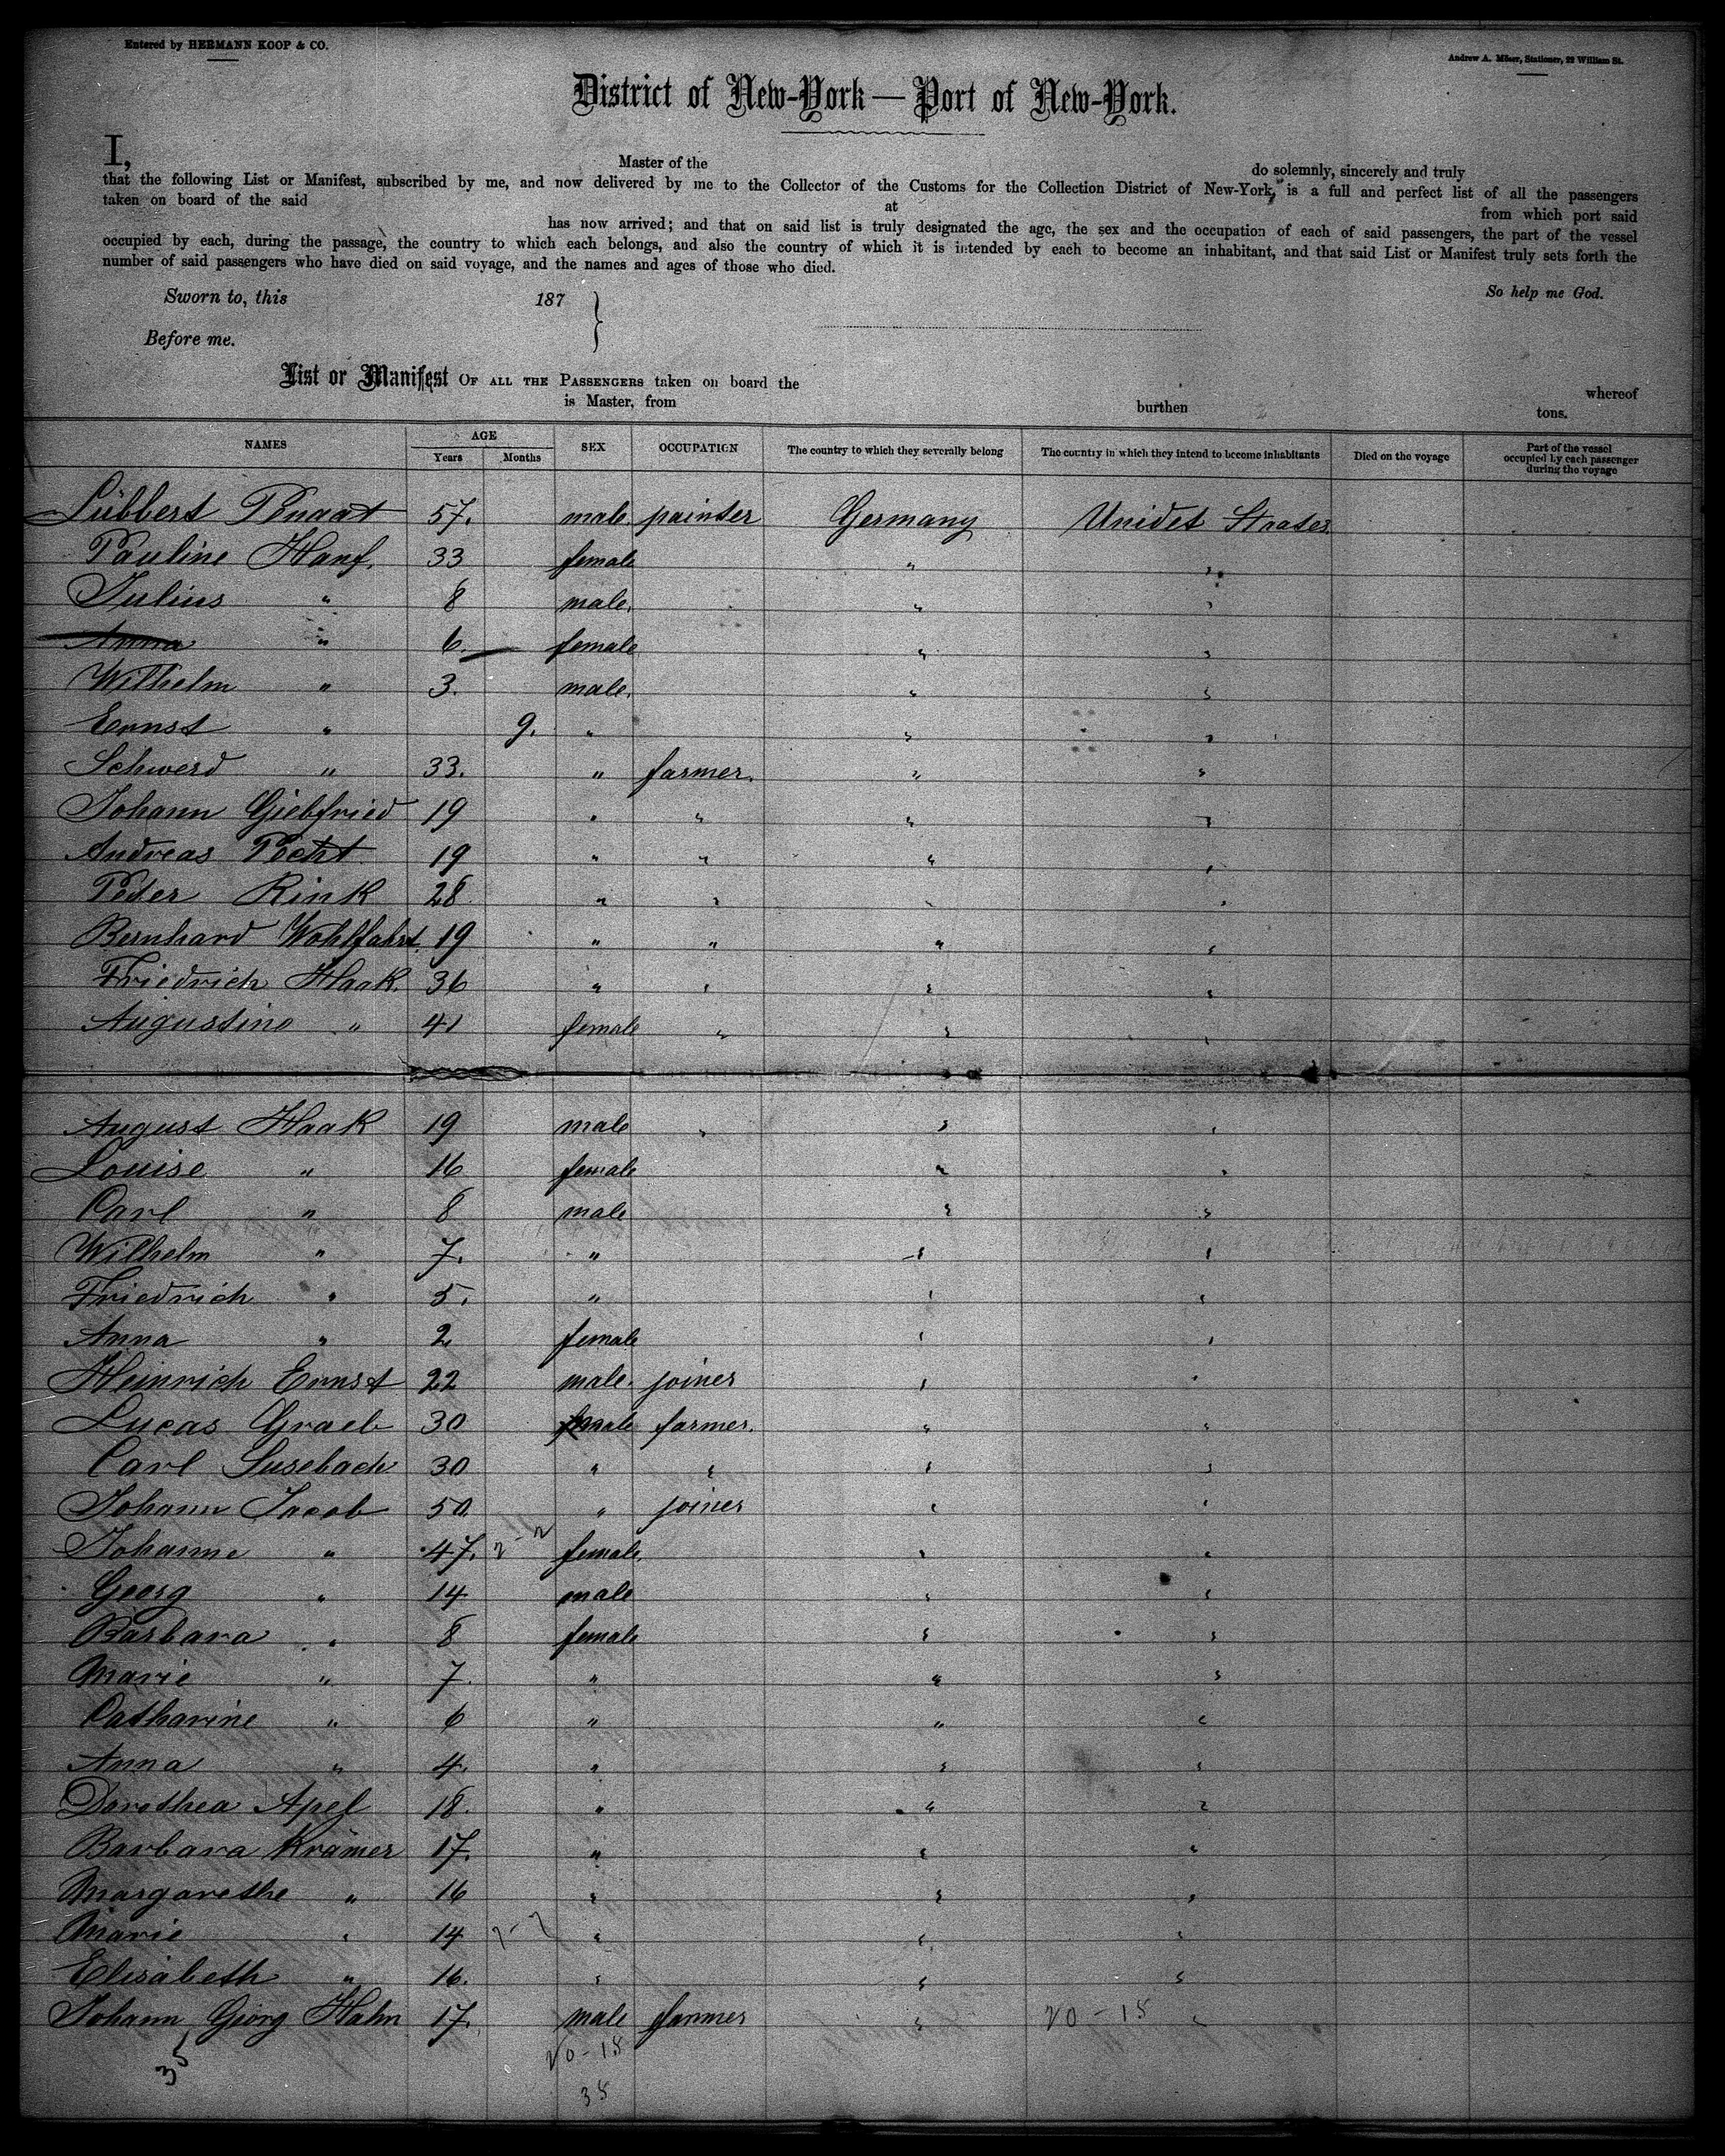 Entered by HERMANN KOOP & CO.
Andrew A. Möser, Stationer, 22 William St.
District of New-York — Port of New-York.
I, Master of the do solemnly, sincerely and truly
that the following List or Manifest, subscribed by me, and now delivered by me to the Collector of the Customs for the Collection District of New-York, is a full and perfect list of all the passengers
taken on board of the said at from which port said
has now arrived; and that on said list is truly designated the age, the sex and the occupation of each of said passengers, the part of the vessel
occupied by each, during the passage, the country to which each belongs, and also the country of which it is intended by each to become an inhabitant, and that said List or Manifest truly sets forth the
number of said passengers who have died on said voyage, and the names and ages of those who died.
Sworn to, this 187 So help me God.
Before me.
List or Manifest OF ALL THE PASSENGERS taken on board the whereof
is Master, from burthen tons.
NAMES AGE Years Months SEX OCCUPATION The country to which they severally belong The country in which they intend to become inhabitants Died on the voyage Part of the vessel occupied by each passenger during the voyage
Lübbert Penaat 57. male. painter Germany Unidet Staates
Pauline Hanf. 33 female " "
Julius " 8 male. " "
Anna " 6. female " "
Wilhelm " 3. male. " "
Ernst " 9. " " "
Schwerd " 33. " farmer. " "
Johann Giebfried 19 " " " "
Andreas Pecht 19 " " " "
Peter Rink 28 " " " "
Bernhard Wohlfahrt. 19 " " " "
Friedrich Haak. 36 " " " "
Augustine " 41 female " " "
August Haak 19 male " " "
Louise " 16 female " "
Carl " 8 male " "
Wilhelm " 7. " " "
Friedrich " 5. " " "
Anna " 2 female " "
Heinrich Ernst 22 male. joiner " "
Lucas Graeb 30 male farmer. " "
Carl Susebach 30 " " " "
Johann Jacob 50. " joiner " "
Johanne " 47. female. " "
Georg " 14 male " "
Barbara " 8 female " "
Marie " 7. " " "
Catharine " 6 " " "
Anna " 4. " " "
Dorothea Apel 18. " " "
Barbara Krämer 17. " " "
Margarethe " 16 " " "
Marie " 14 " " "
Elisabeth " 16. " " "
Johann Georg Hahn 17. male farmer " 20-15 "
35 20-15
35